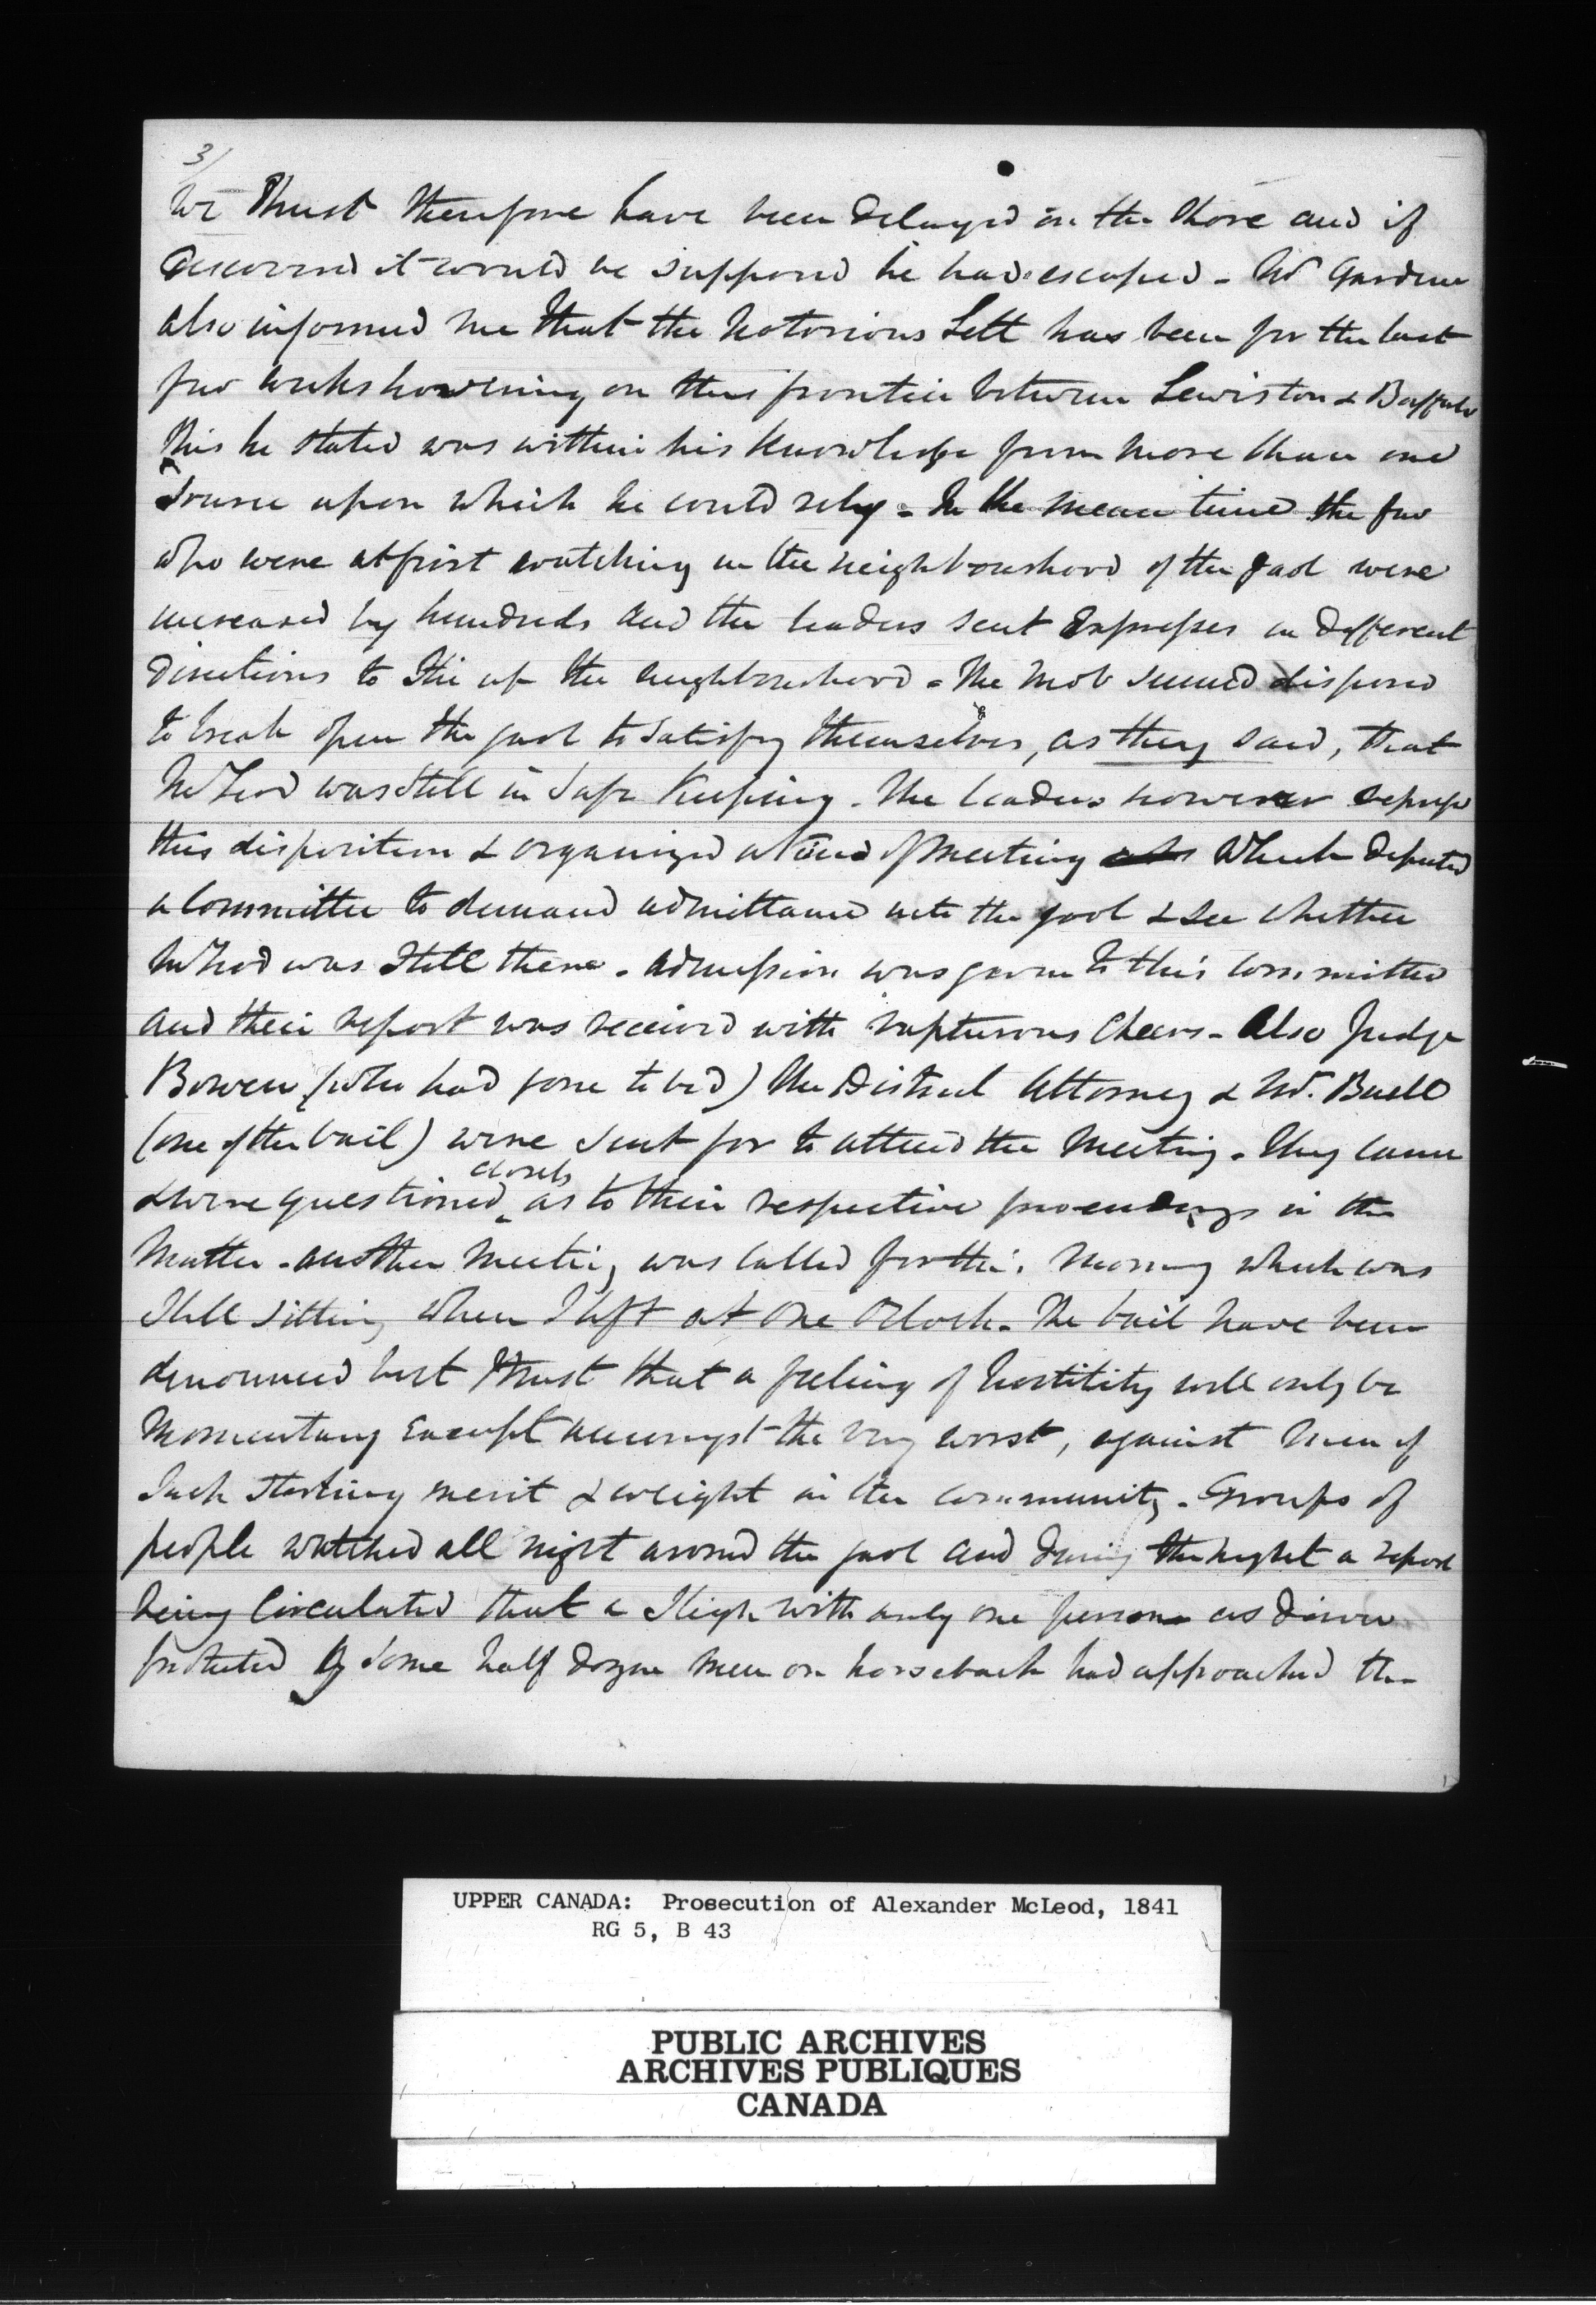 3/
We must therefore have been delayed on the shore and if
discovered it would be supposed he had escaped - Mr Gardner
also informed me that the notorious Lett has been for the last
few weeks hovering on this frontier between Lewiston & Buffalo
this he stated was within his knowledge from more than one
source upon which he could rely - In the mean time the few
who were at first watching in the neighbourhood of the gaol were
increased by hundreds and the leaders sent Expresses in different
directions to stir up the neighbourhood - The mob seemed disposed
to break open the gaol to satisfy themselves, as they said, that
McLeod was still in safe keeping. The leaders however
this disposition & organized a kind of meeting which deputed
a Committee to demand admittance into the gaol & see whether
McLeod was still there - admission was given to this committee
and their report was received with rapturous cheers - Also Judge
Bowen (who had gone to bed) the District Attorney & Mr. Buell
(one of the bail) were sent for to attend the meeting - They came
& were questioned closely as to their respective proceedings in the
matter - another meeting was called for this morning which was
still sitting when I left at one O'Clock - The bail have been
denounced but I trust that a feeling of hostility will only be
momentary except amongst the very worst, against men of
such sterling merit & weight in the community - Groups of
people watched all night around the gaol and during the night a report
being circulated that a sleigh with only one person as driver
protected by some half dozen men on horseback had approached the
UPPER CANADA: Prosecution of Alexander McLeod, 1841
RG 5, B 43
PUBLIC ARCHIVES
ARCHIVES PUBLIQUES
CANADA